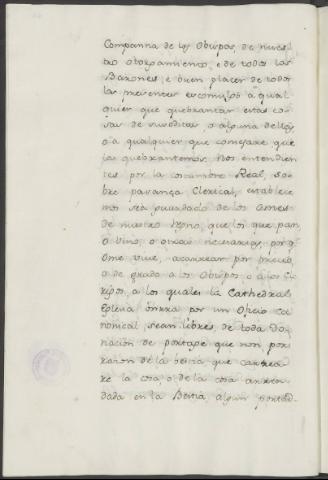 Companna de los Obispos, de nuest
tro otorgamiento, e de todos los
Barones, e buen placer de todos
los presentes escomulgo a qual
quier que quebrantar estas co
sas de susoditas, o alguna dellas,
o a qualquier que comenzare que
las quebrantemos. Nos entendien
tes por la costumbre Real, so
bre Clerical, establece
mos sea guardado de los Omes
de nuestro Regno, que los que pan,
o vino, o otras necesarias, por q.
Ome vive, por precio,
o de grado a los Obispos o a los Cle
rigos, a los quales la Cathedral
Eglesia onrra por un Oficio Ca
nonical, sean libres, de toda Do
nacion de portage que non por
de la bestia que
re la cosa, o de la cosa
dada en la Bestia, algun portad-